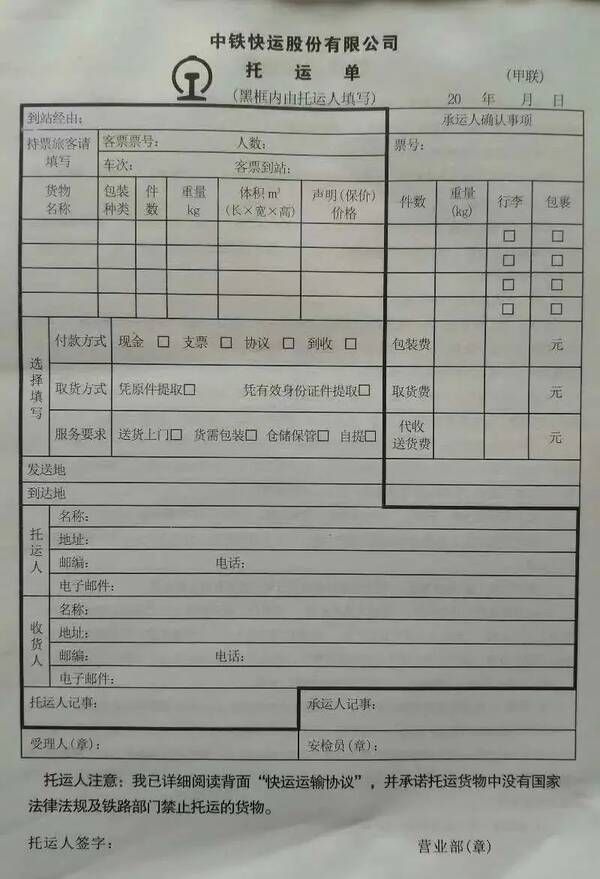 中铁快运股份有限公司
托运单
(甲联)
(黑框内由托运人填写)
20 年 月 日
到站经由:
承运人确认事项
持票旅客请填写
客票票号: 人数:
票号:
车次: 客票到站:
货物名称 包装种类 件数 重量kg 体积m³(长×宽×高) 声明(保价)价格 件数 重量(kg) 行李 包裹
□ □
□ □
□ □
□ □
选择填写
付款方式 现金 □ 支票 □ 协议 □ 到收 □ 包装费 元
取货方式 凭原件提取□ 凭有效身份证件提取□ 取货费 元
服务要求 送货上门□ 货需包装□ 仓储保管□ 自提□ 代收送货费 元
发送地
到达地
托运人
名称:
地址:
邮编: 电话:
电子邮件:
收货人
名称:
地址:
邮编: 电话:
电子邮件:
托运人记事: 承运人记事:
受理人(章): 安检员(章):
托运人注意:我已详细阅读背面“快运运输协议”,并承诺托运货物中没有国家
法律法规及铁路部门禁止托运的货物。
托运人签字: 营业部(章)